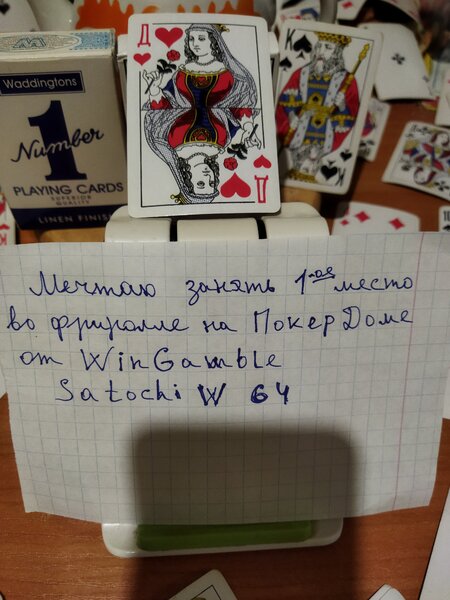 Waddingtons
Number
1
PLAYING CARDS
SUPERIOR
QUALITY
LINEN FINISH
Д
Д
K
Мечтаю занять 1-ое место
во фриролле на ПокерДоме
от WinGamble
Satochi W 64